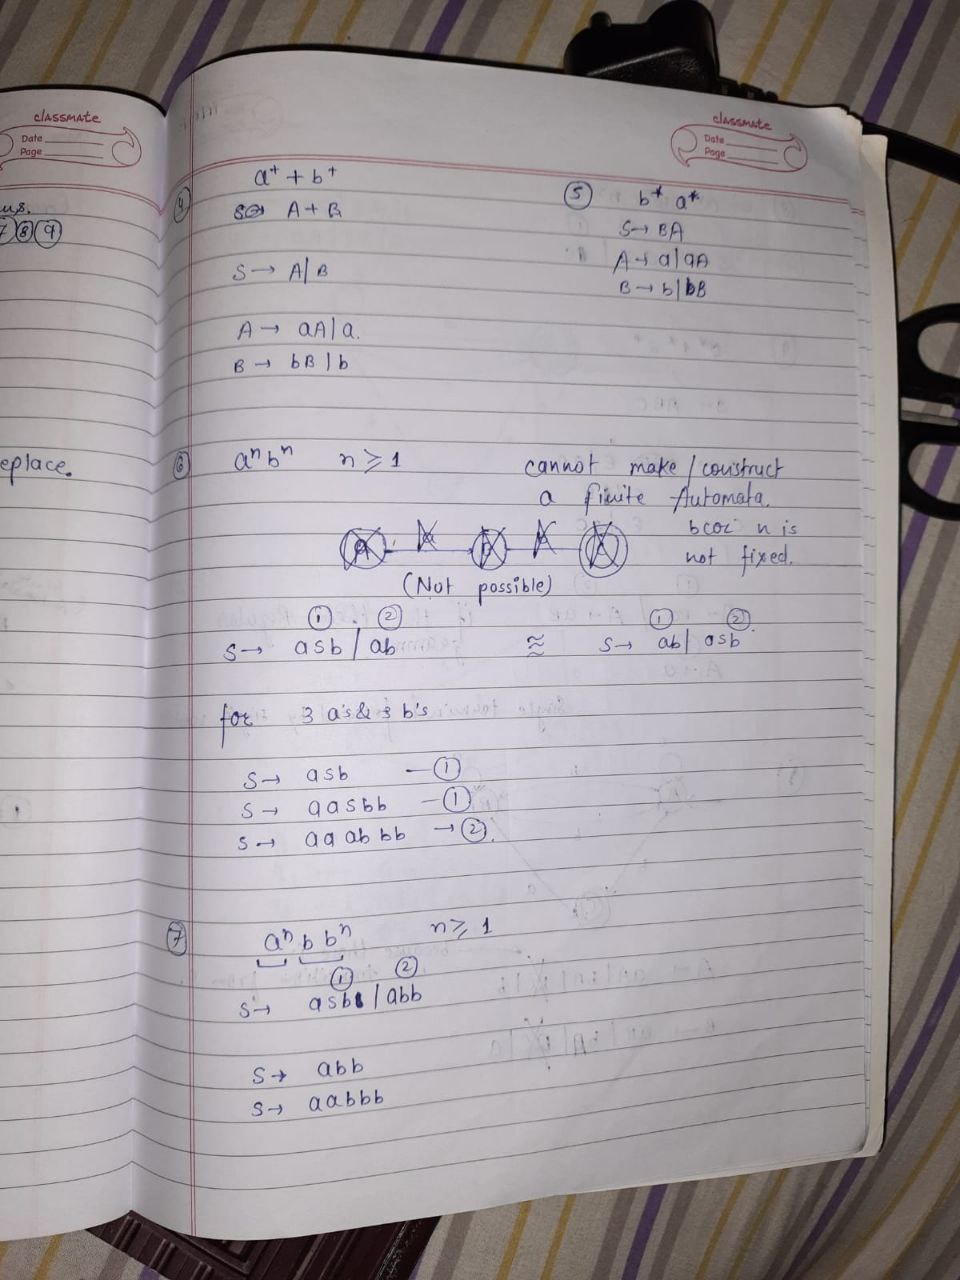 classmate
Date
Page
eplace.
7 8 9
classmate
Date
Page
4
a⁺ + b⁺
A + B
S → A | B
A → aA | a.
B → bB | b
5
b* a*
S → BA
A → a | aA
B → b | bB
6
aⁿ bⁿ n ≥ 1
cannot make / construct
a finite Automata.
bcoz n is
not fixed.
(Not possible)
1 2
S → asb / ab ≈ S → ab / asb
1 2
for 3 a's & 3 b's
S → asb — 1
S → aasbb — 1
S → aaabbb → 2.
7
aⁿ b bⁿ n ≥ 1
1 2
S → asb / abb
S → abb
S → aabbb